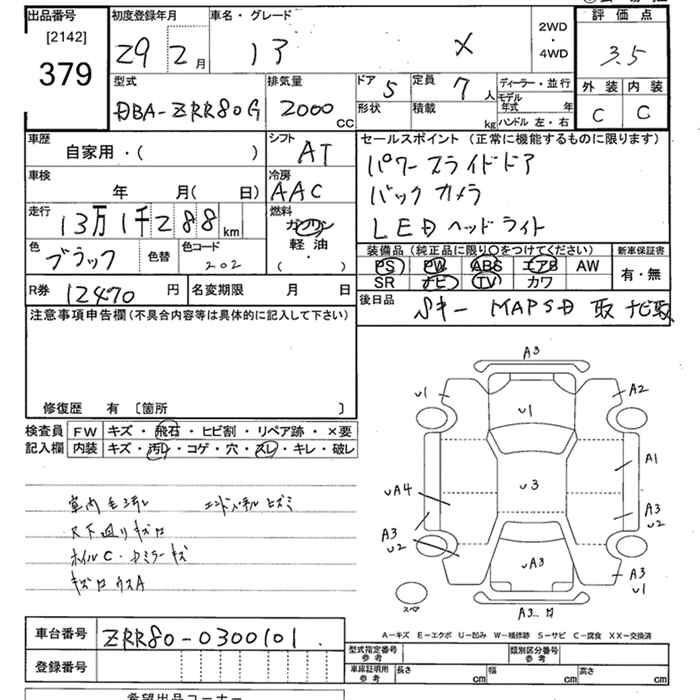 出品番号
[2142]
379
初度登録年月
29 2月
車名・グレード
13 X
2WD
・
4WD
評価点
3.5
外装 内装
C C
型式
DBA-ZRR80G
排気量
2000 CC
ドア 5
形状
定員 7人
積載 kg
ディーラー・並行
モデル年式 年
ハンドル 左・右
車歴
自家用・( )
シフト
AT
車検
年 月( 日)
冷房
AAC
走行
13万1千288km
燃料
ガソリン
軽油
( ・ )
色
ブラック
色替
色コード
202
セールスポイント(正常に機能するものに限ります)
パワースライドドア
バックカメラ
LEDヘッドライト
装備品(純正品に限り〇をつけてください)
PS PW ABS エアB AW
SR ナビ TV カワ
新車保証書
有・無
R券 12470円
名変期限 月 日
後日品
Sキー MAPSD 取 ナビ取
注意事項申告欄(不具合内容等は具体的に記入して下さい)
修復歴 有 〔箇所 〕
検査員 FW キズ・飛石・ヒビ割・リペア跡・×要
記入欄 内装 キズ・汚レ・コゲ・穴・スレ・キレ・破レ
室内毛汚レ エンドパネルヒズミ
下廻りキズ
ホイルC・ミラーキズ
A3
U1
A2
U1
A1
U3
UA4
A3
U2
A3
U2
UA3
A3
U1
スペア
A3
A-キズ E-エクボ U-凹み W-補修跡 S-サビ C-腐食 XX-交換済
車台番号 ZRR80-0300101
登録番号
型式指定番号
参考
類別区分番号
参考
車庫証明用
参考
長さ cm 幅 cm 高さ cm
希望出品コーナー